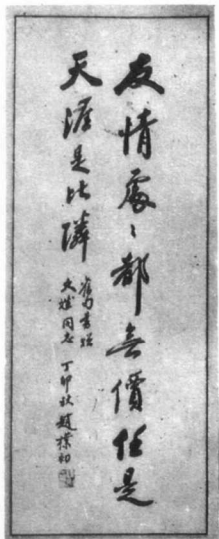 友情處々都無價任是
天涯是比隣
舊句書贈
大斌同志 丁卯秋 趙樸初